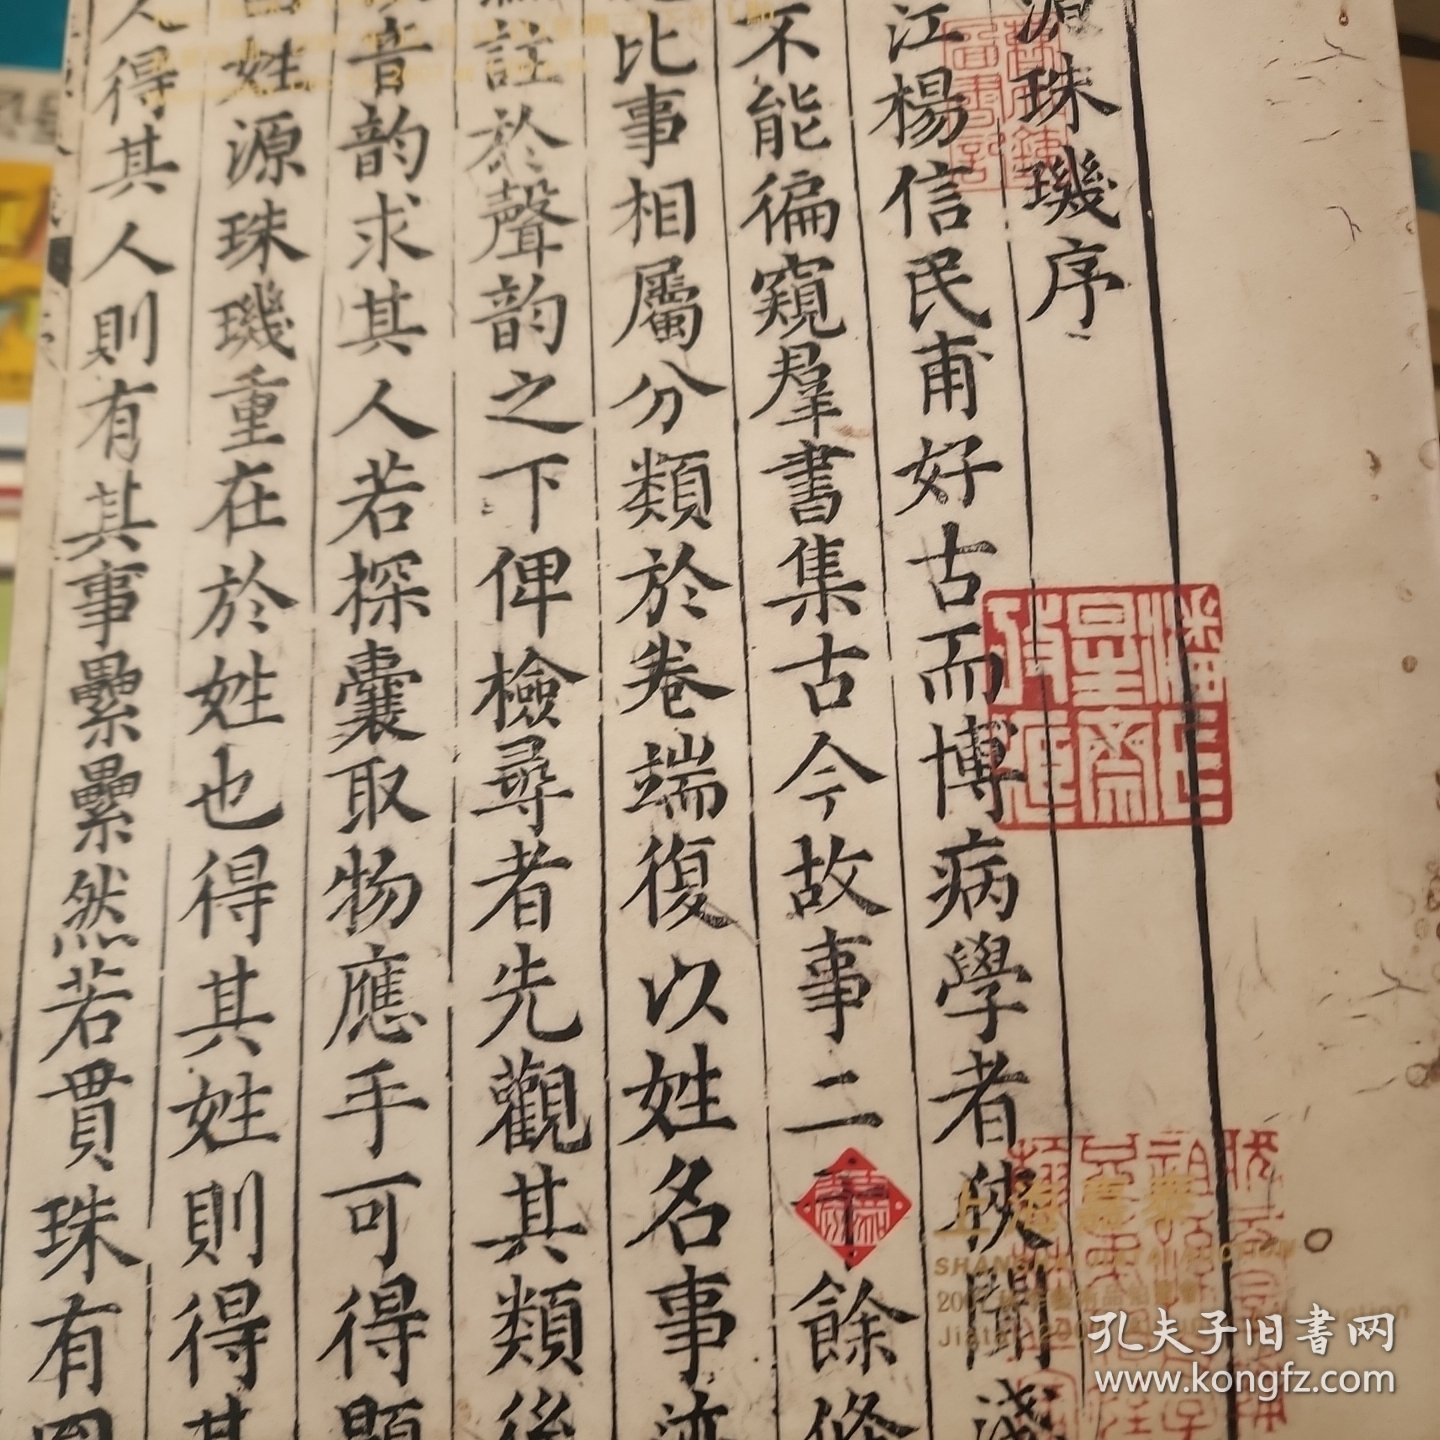 源珠璣序
江楊信民甫好古而博病學者狹聞淺
不能徧窺羣書集古今故事二千餘條
比事相屬分類於卷端復以姓名事迹
註於聲韵之下俾檢尋者先觀其類後
音韵求其人若探囊取物應手可得題
姓源珠璣重在於姓也得其姓則得其
人得其人則有其事纍纍然若貫珠有
孔夫子旧书网
www.kongfz.com